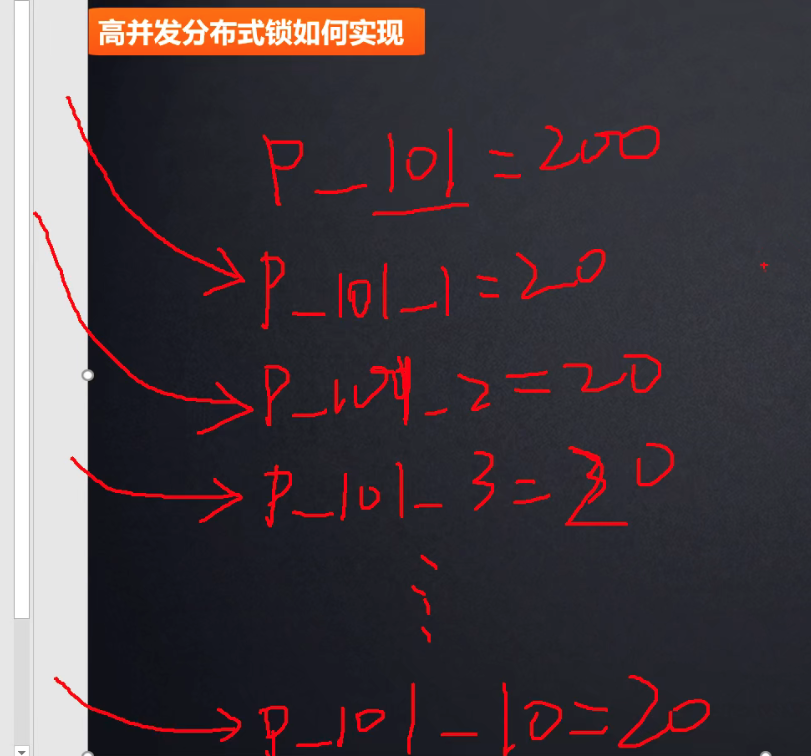 高并发分布式锁如何实现
P_101=200
P_101_1=20
P_101_2=20
P_101_3=20
P_101_10=20